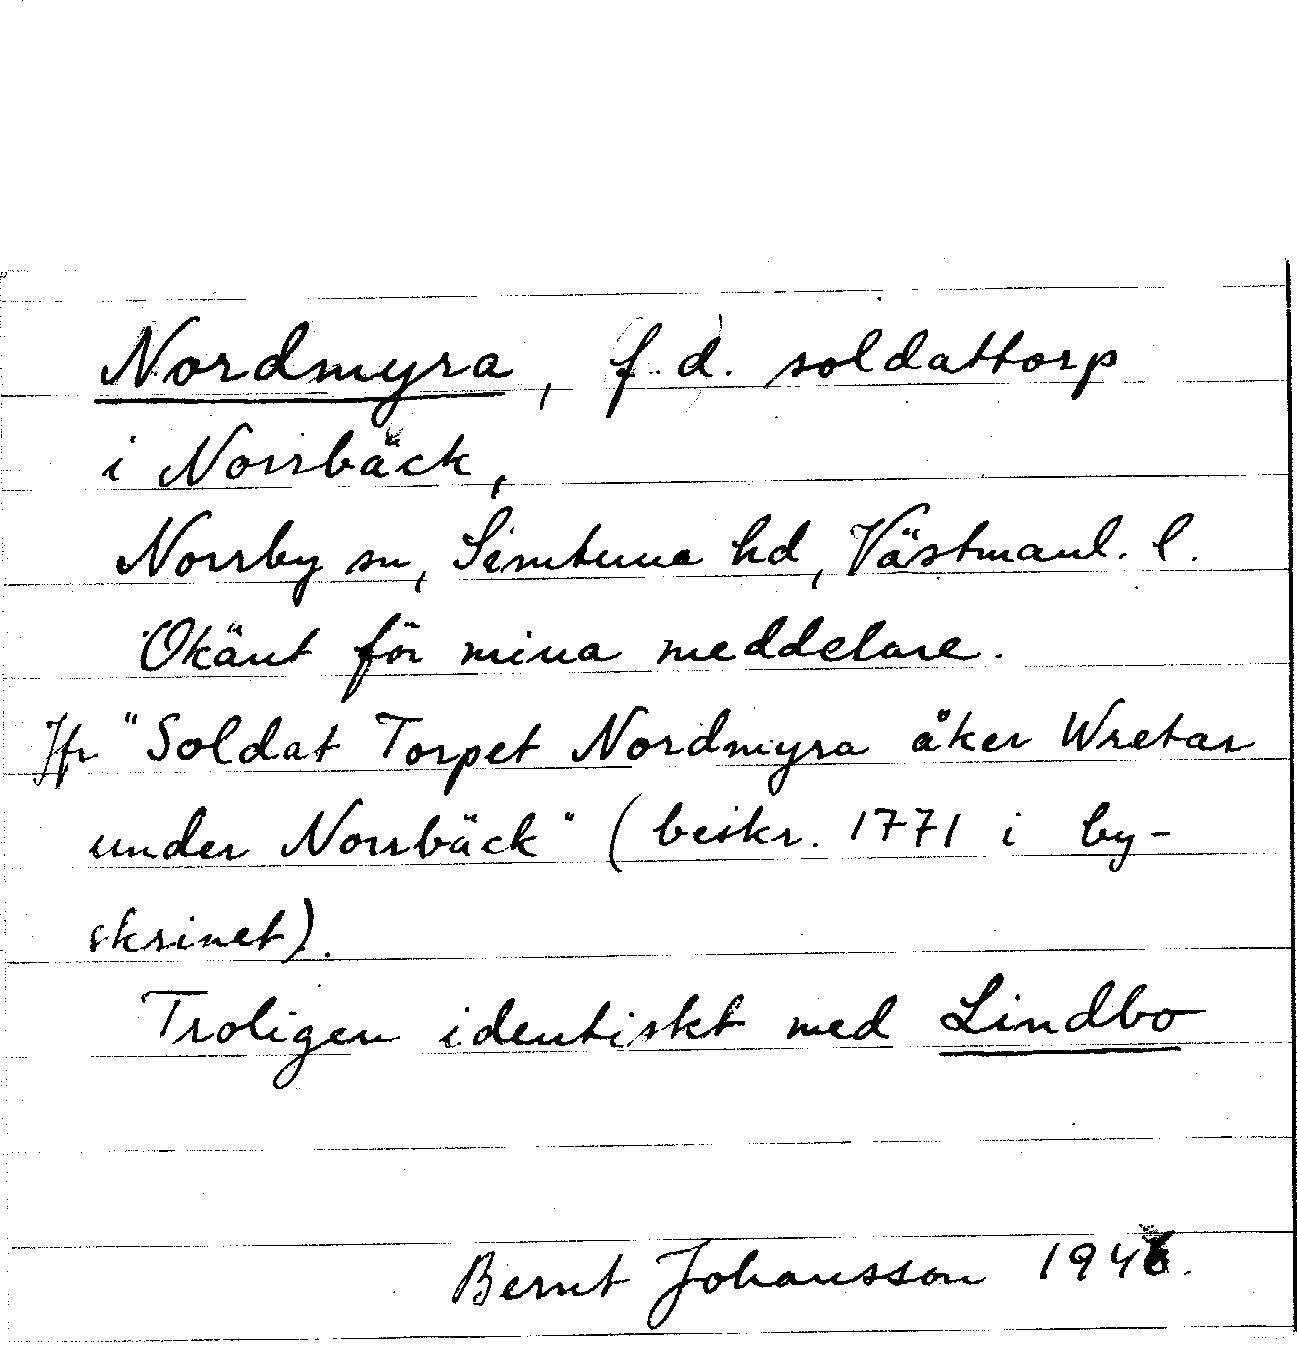 Nordmyra, f.d. soldattorp
i Norrbäck,
Norrby sn, Simtuna hd, Västmanl. l.
Okänt för mina meddelare.
Jfr "Soldat Torpet Nordmyra åker Wretar
under Norrbäck" (beskr. 1771 i by-
skrinet).
Troligen identiskt med Lindbo
Bernt Johansson 1946.